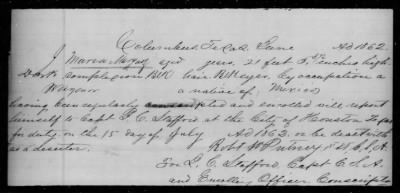 Columbus Texas June AD 1862
aged years, 21 feet 5 inches high
Dark complexion Blk hair Blk eyes, by occupation a
a native of Mexico
having been regularly and enrolled will report
himself to Capt J. C. Stafford at the City of Houston Texas
for duty, on the 15 day of July AD 1862, or be dealt with
as a deserter. Robt
For J. C. Stafford, Capt C.S.A.
and Enrolling Officer, Conscripts